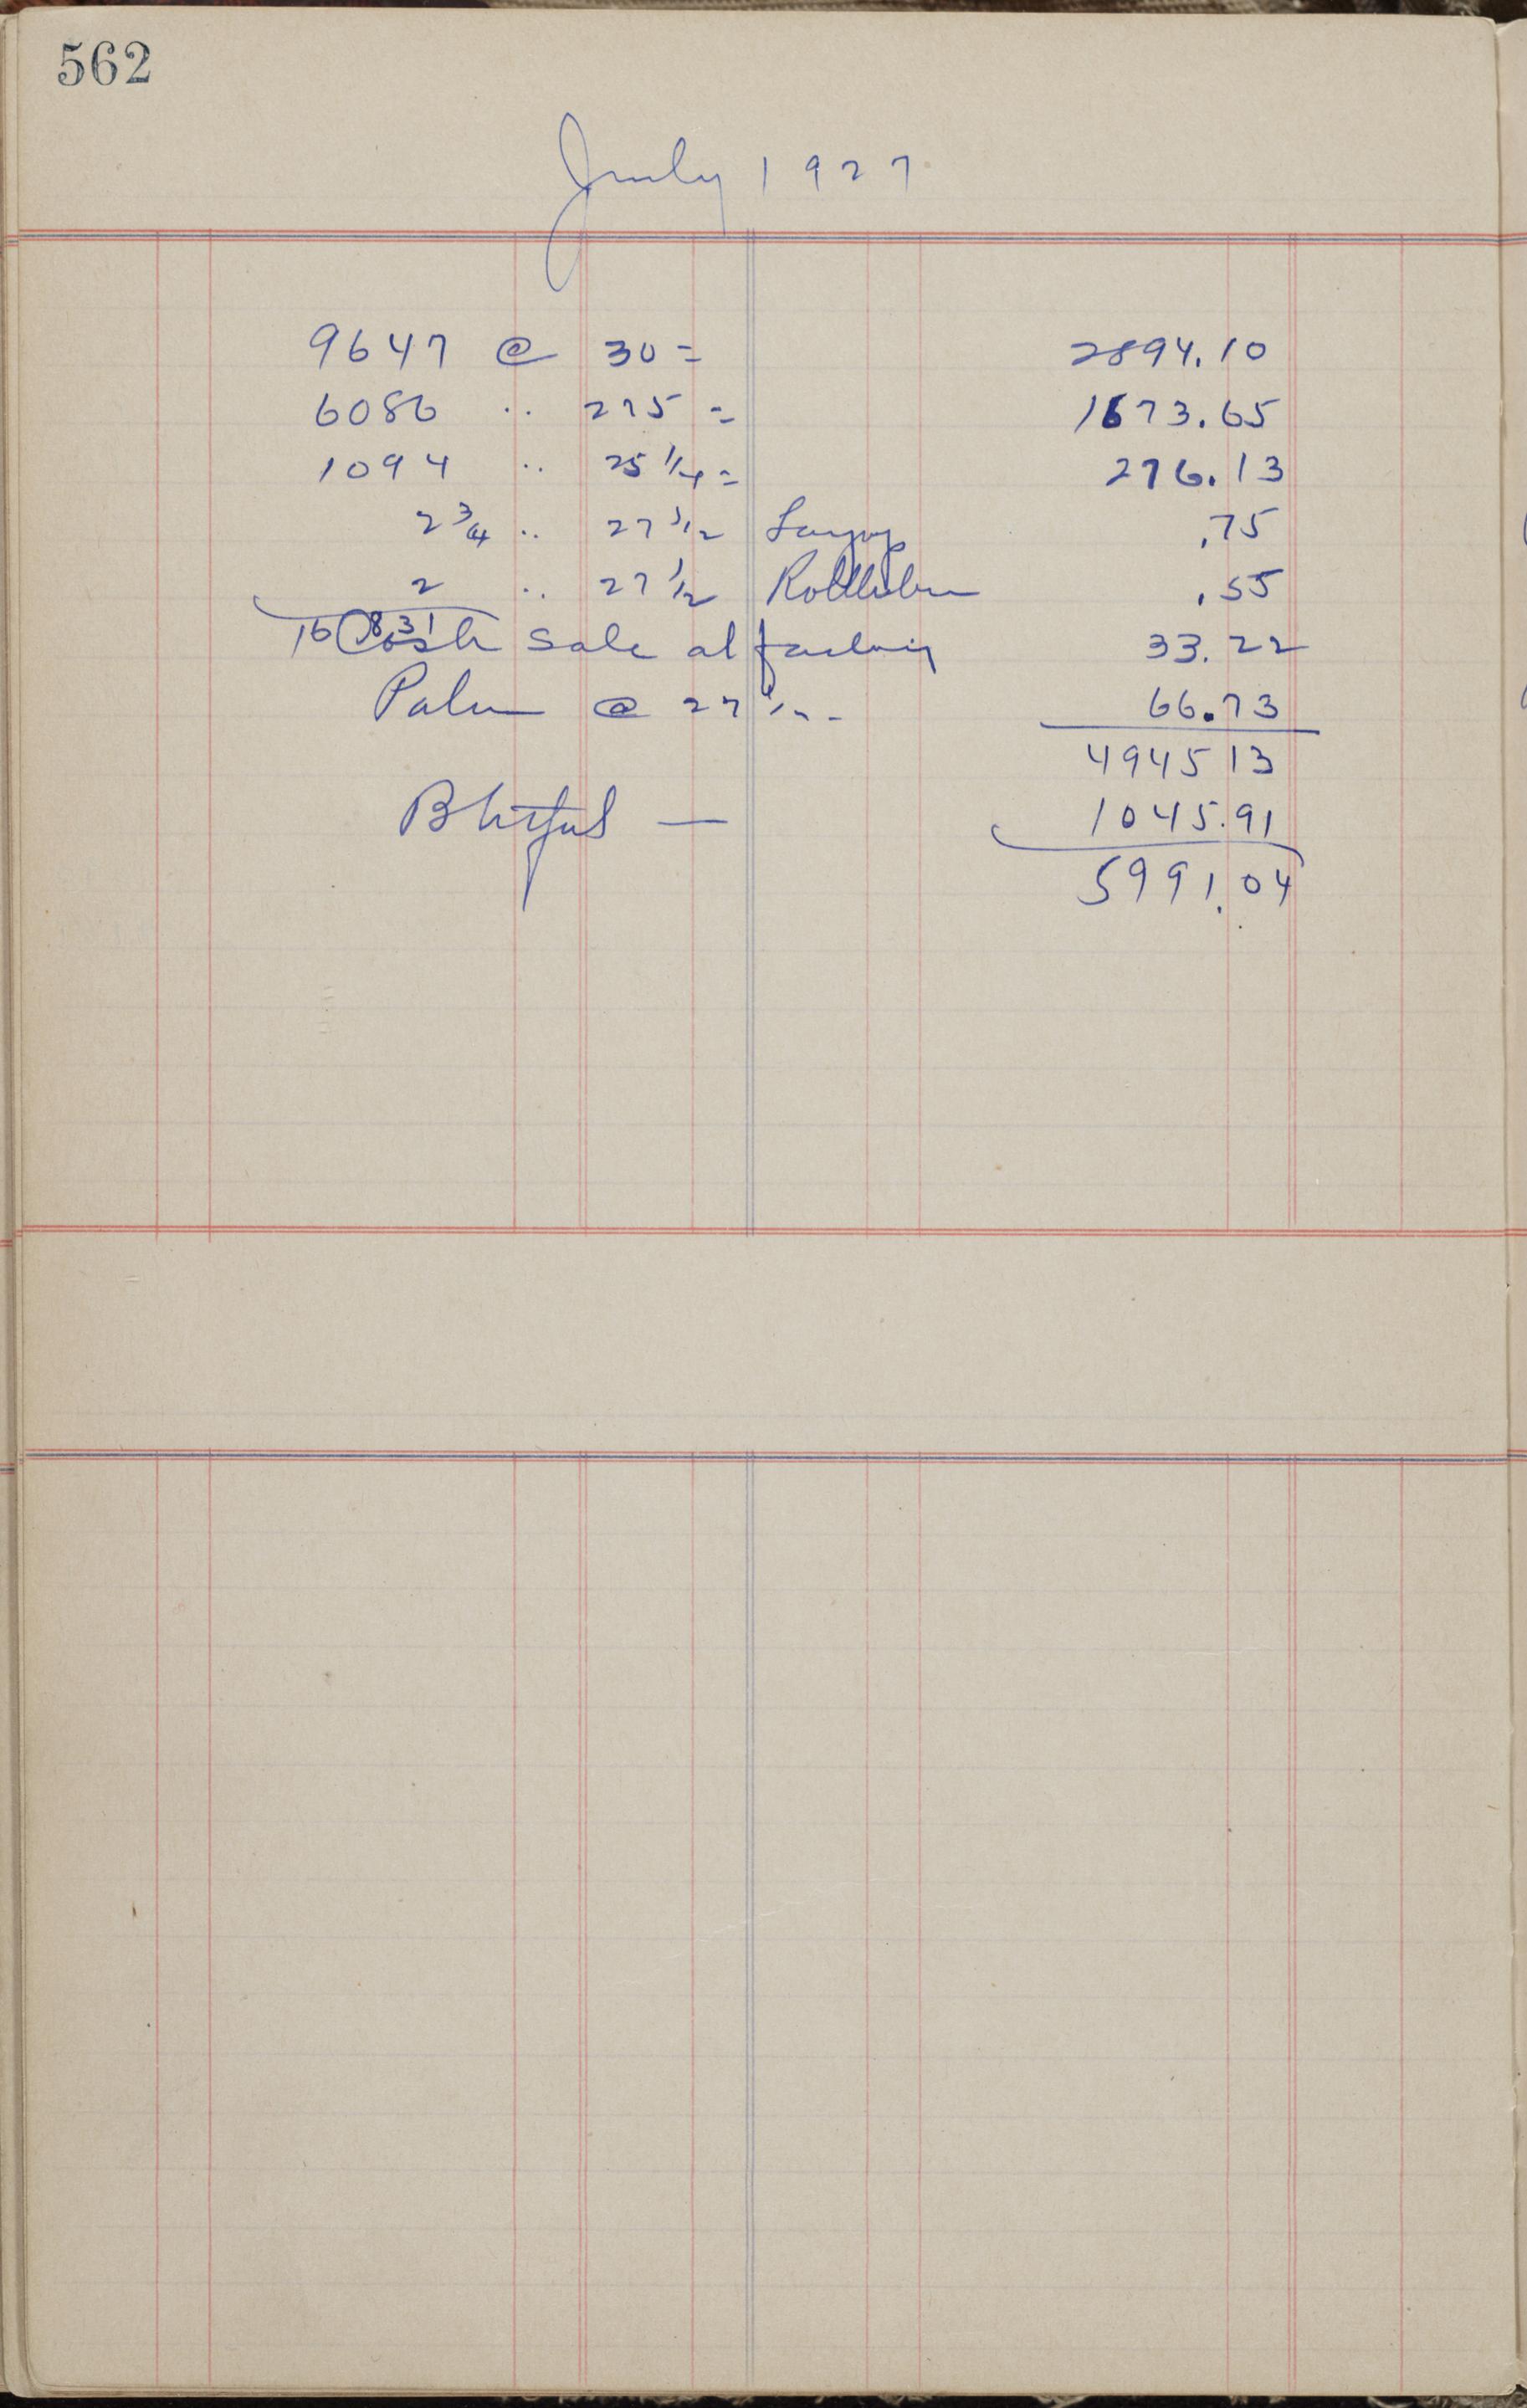 562
July 1927
9647 @ 30 = 2894.10
6086 .. 275 = 1673.65
1094 .. 25 1/4 = 276.13
2 3/4 .. 27 1/2 .75
2 .. 27 1/2 .55
16831
Cash sale at factory 33.22
Palm @ 27 1/2 - 66.73
4945 13
— 1045.91
5991.04